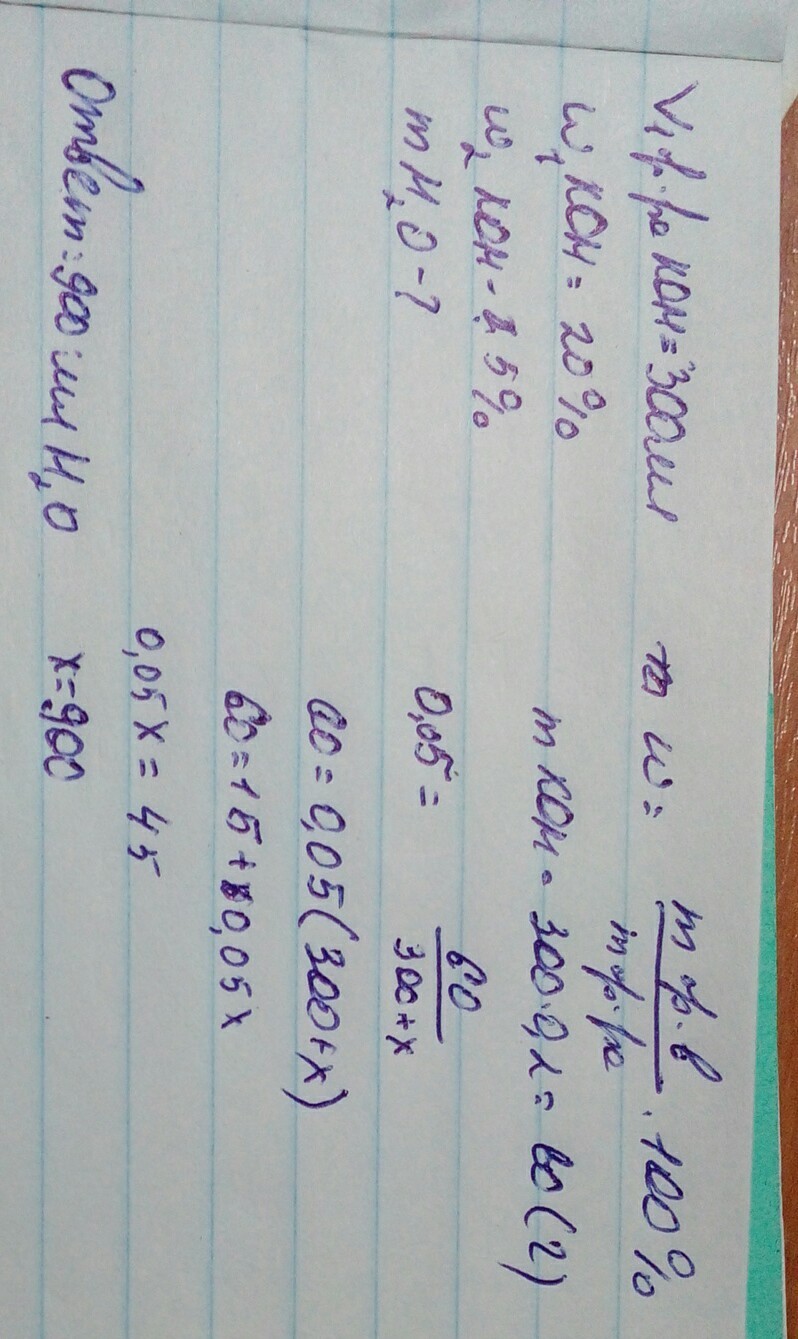 V₁ р-ра KOH = 300 мл
w₁ KOH = 20%
w₂ KOH - 5%
m H₂O - ?
w = m р.в / m р-ра · 100%
m KOH = 300·0,2 = 60 (г)
0,05 = 60 / 300+x
60 = 0,05(300+x)
60 = 15 + 0,05x
0,05x = 45
x = 900
Ответ: 900 мл H₂O